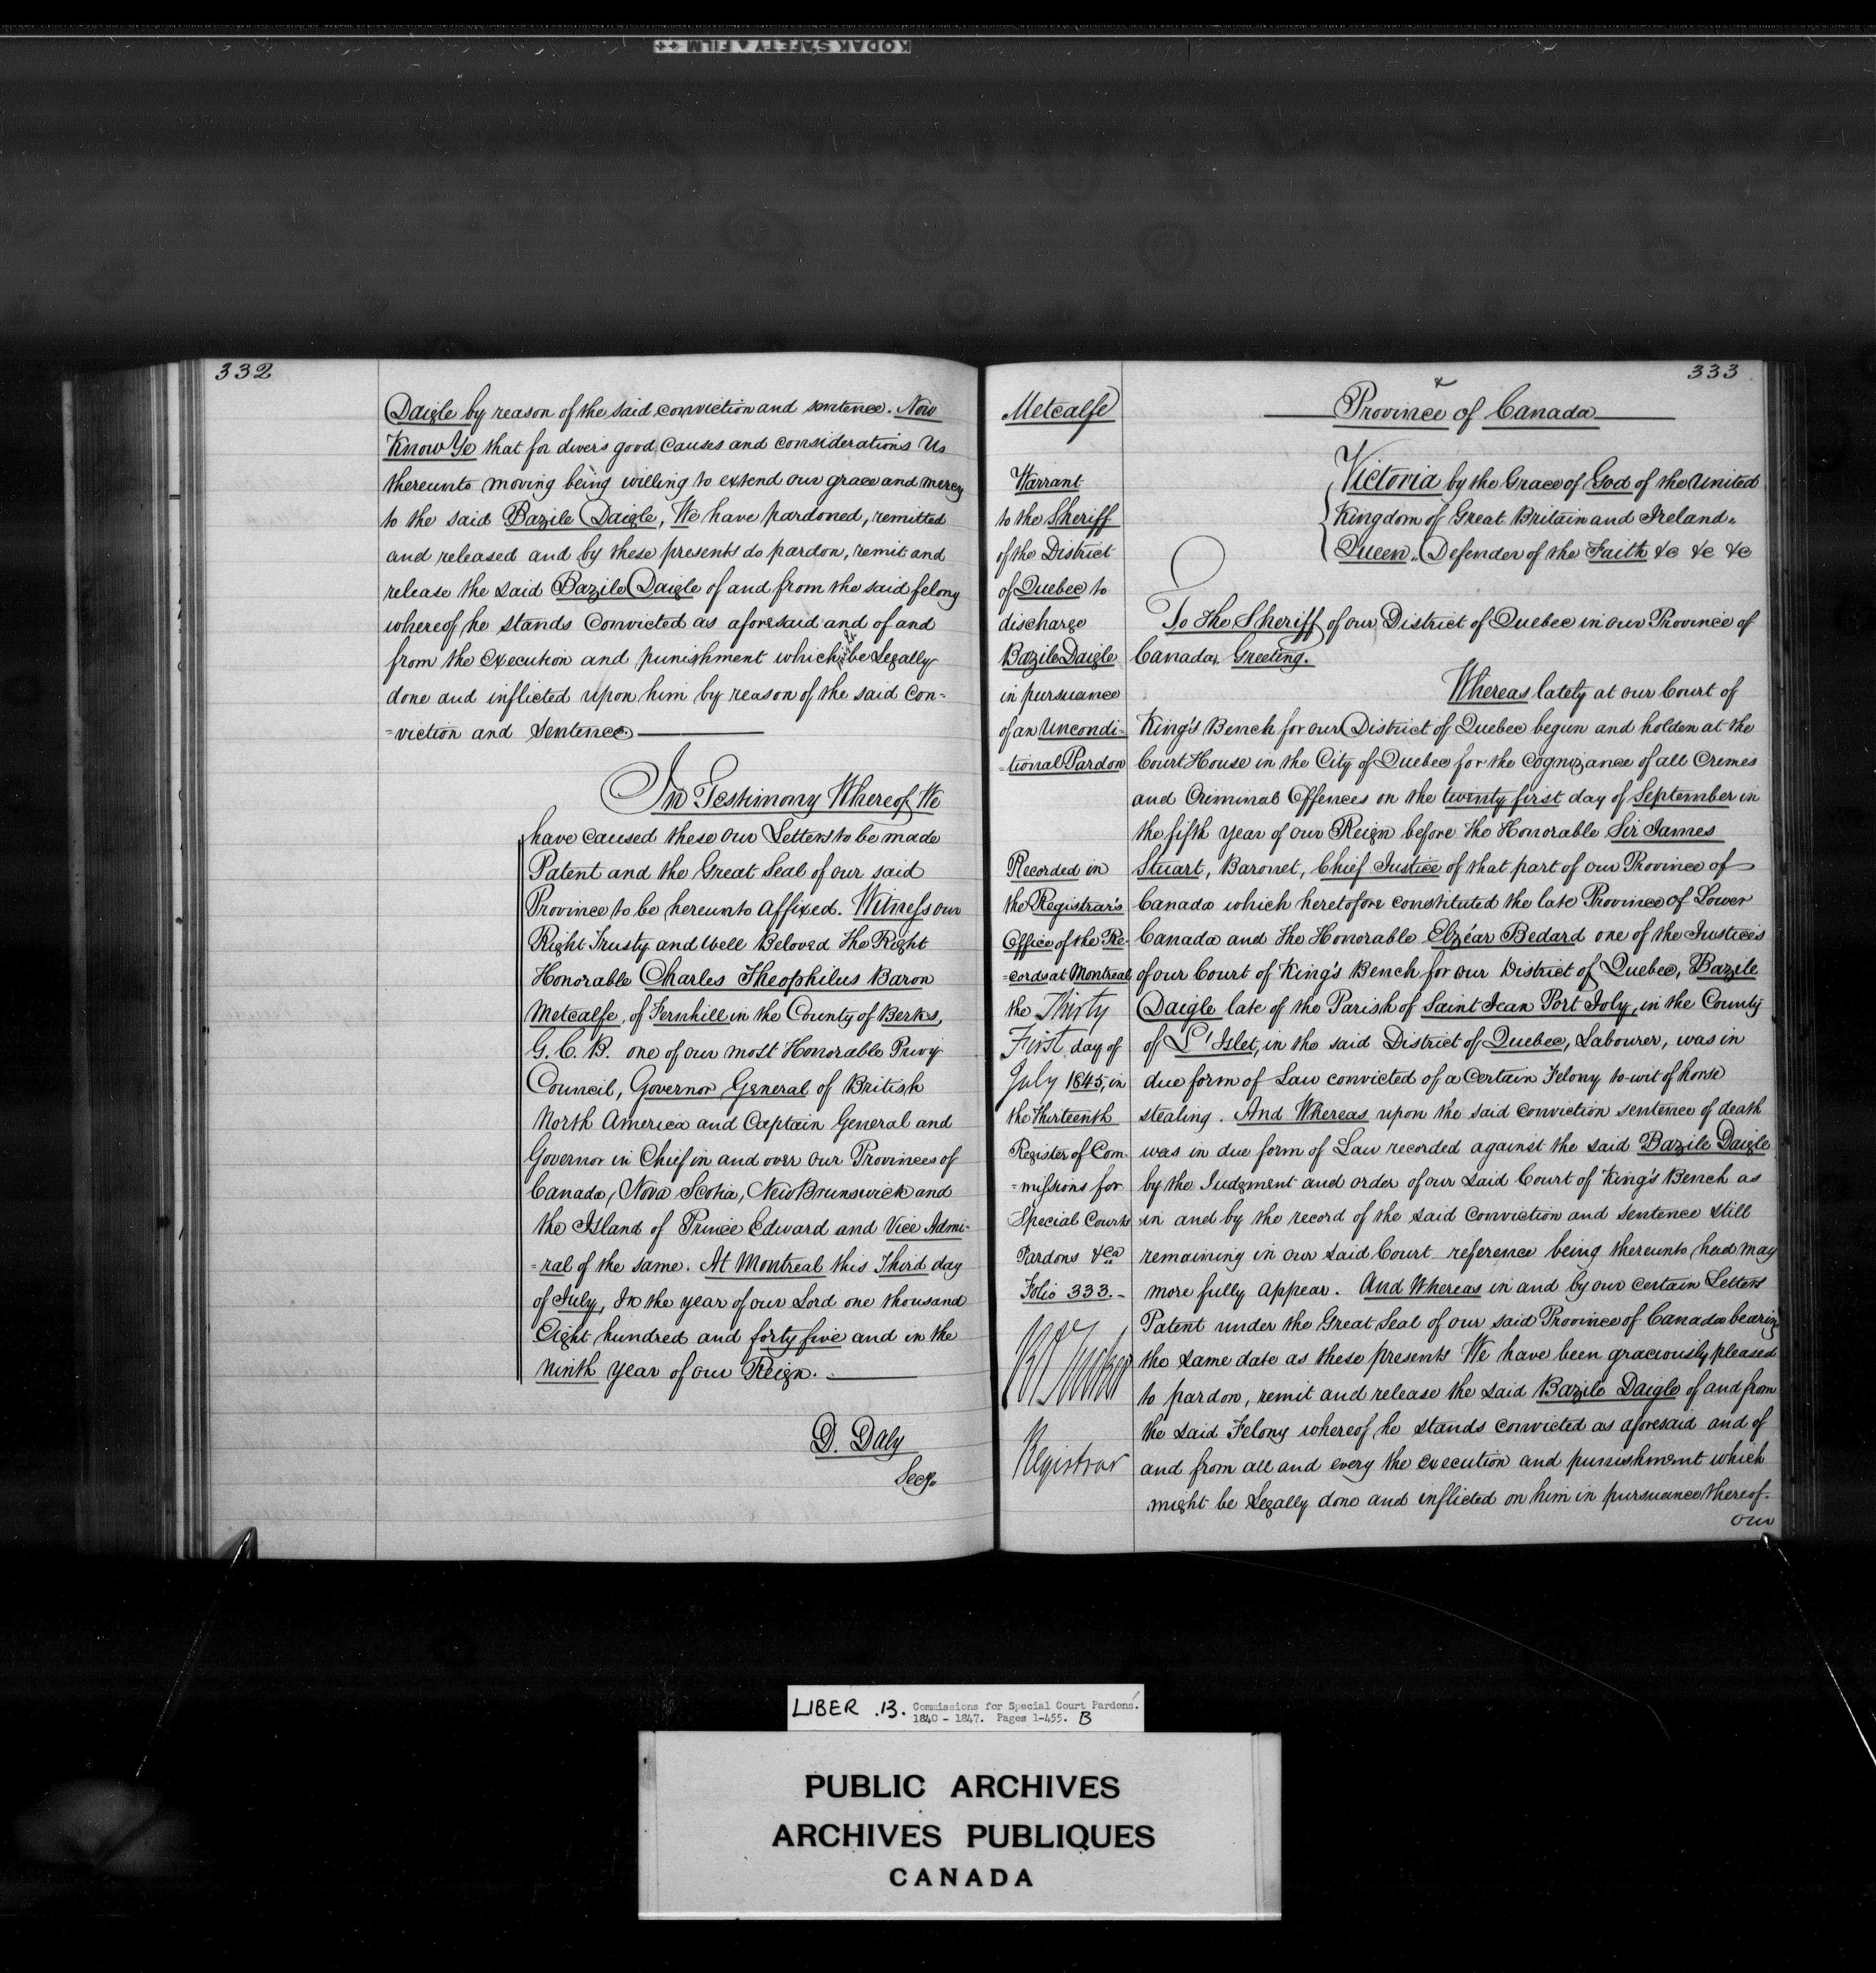 KODAK SAFETY FILM
332
Daigle by reason of the said conviction and sentence. Now
Know Ye that for divers good causes and considerations Us
thereunto moving being willing to extend our grace and mercy
to the said Bazile Daigle, We have pardoned, remitted
and released and by these presents do pardon, remit and
release the said Bazile Daigle of and from the said felony
whereof he stands convicted as aforesaid and of and
from the execution and punishment which might be Legally
done and inflicted upon him by reason of the said con=
=viction and Sentence.
In Testimony Whereof We
have caused these our Letters to be made
Patent and the Great Seal of our said
Province to be hereunto affixed. Witness our
Right Trusty and Well Beloved The Right
Honorable Charles Theophilus Baron
Metcalfe, of Fernhill in the County of Berks,
G. C. B. one of our most Honorable Privy
Council, Governor General of British
North America and Captain General and
Governor in Chief in and over our Provinces of
Canada, Nova Scotia, New Brunswick and
the Island of Prince Edward and Vice Admi=
=ral of the same. At Montreal this Third day
of July, In the year of our Lord one thousand
Eight hundred and forty five and in the
ninth year of our Reign.
D. Daly
Secy.
333
Metcalfe
Warrant
to the Sheriff
of the District
of Quebec to
discharge
Bazile Daigle
in pursuance
of an Uncondi=
=tional Pardon
Recorded in
the Registrar's
Office of the Re=
=cords at Montreal
the Thirty
First day of
July 1845, in
the thirteenth
Register of Com=
=missions for
Special Courts
Pardons &ca
Folio 333.-
Registrar
Province of Canada
Victoria by the Grace of God of the United
Kingdom of Great Britain and Ireland,
Queen, Defender of the Faith &c &c &c
To The Sheriff of our District of Quebec in our Province of
Canada, Greeting.
Whereas lately at our Court of
King's Bench for our District of Quebec begun and holden at the
Court House in the City of Quebec for the Cognizance of all Crimes
and Criminal Offences on the twenty first day of September in
the fifth year of our Reign before the Honorable Sir James
Stuart, Baronet, Chief Justice of that part of our Province of
Canada which heretofore constituted the late Province of Lower
Canada and the Honorable Elzéar Bedard one of the Justices
of our Court of King's Bench for our District of Quebec, Bazile
Daigle late of the Parish of Saint Jean Port Joly, in the County
of L'Islet, in the said District of Quebec, Labourer, was in
due form of Law convicted of a certain Felony to-wit of horse
stealing. And Whereas upon the said conviction sentence of death
was in due form of Law recorded against the said Bazile Daigle
by the Judgment and order of our said Court of King's Bench as
in and by the record of the said Conviction and Sentence still
remaining in our said Court reference being thereunto had may
more fully appear. And Whereas in and by our certain Letters
Patent under the Great Seal of our said Province of Canada bearing
the same date as these presents We have been graciously pleased
to pardon, remit and release the said Bazile Daigle of and from
the said Felony whereof he stands convicted as aforesaid and of
and from all and every the execution and punishment which
might be Legally done and inflicted on him in pursuance thereof.
our
LIBER .13. Commissions for Special Court Pardons.
1840 - 1847. Pages 1-455. B
PUBLIC ARCHIVES
ARCHIVES PUBLIQUES
CANADA